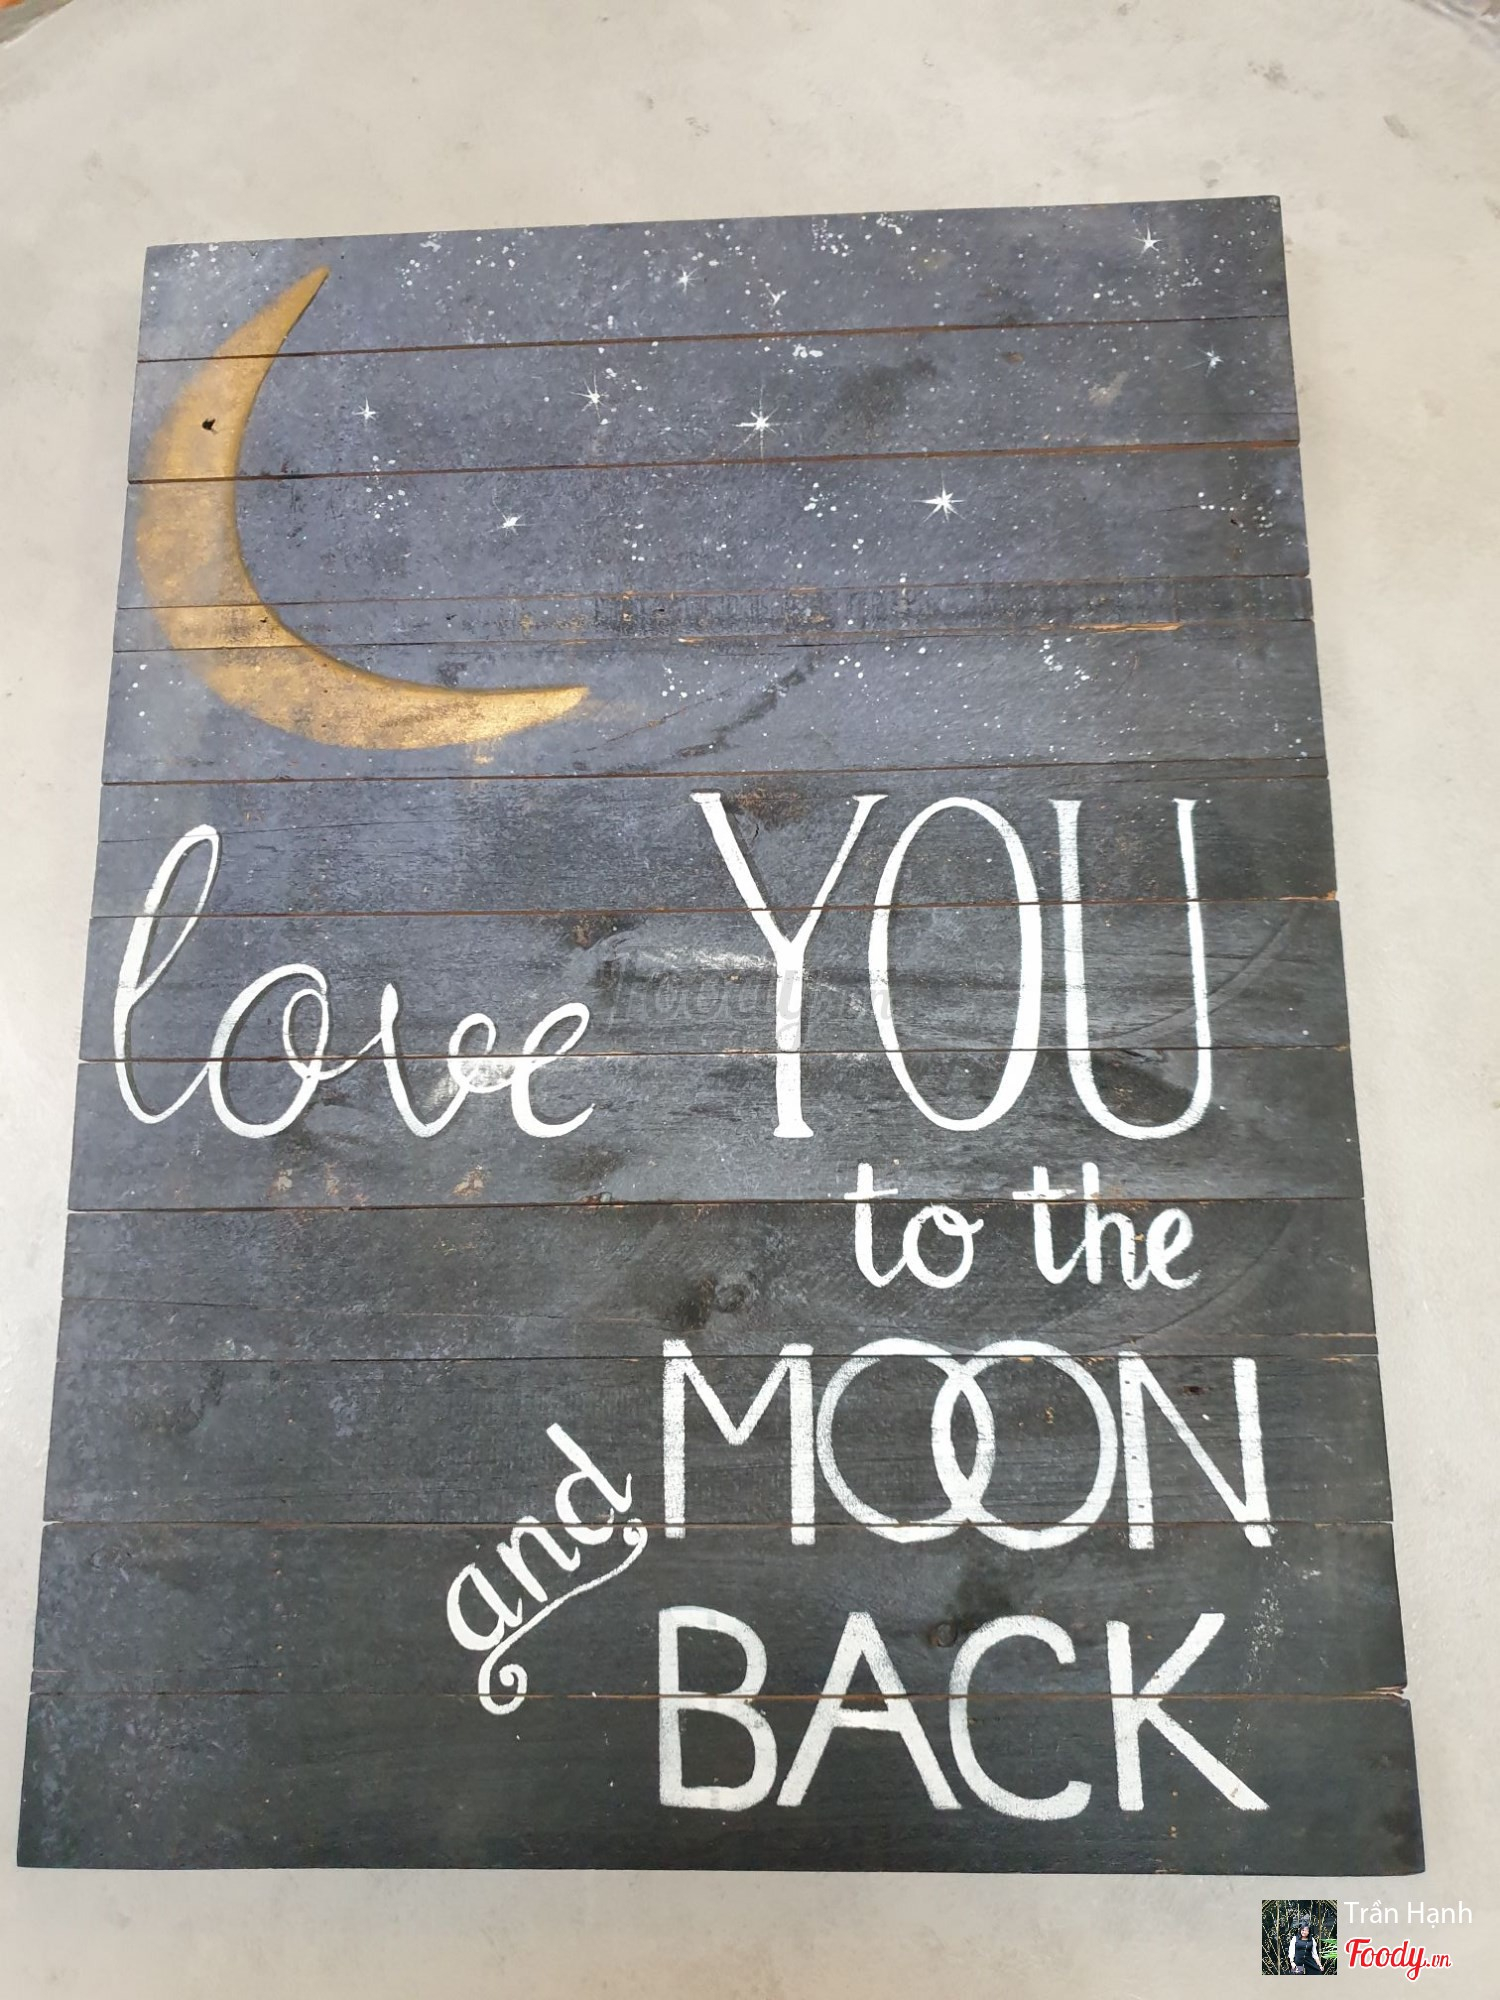 love YOU
to the
MOON
and
BACK
Foody.vn
Trần Hạnh
Foody.vn